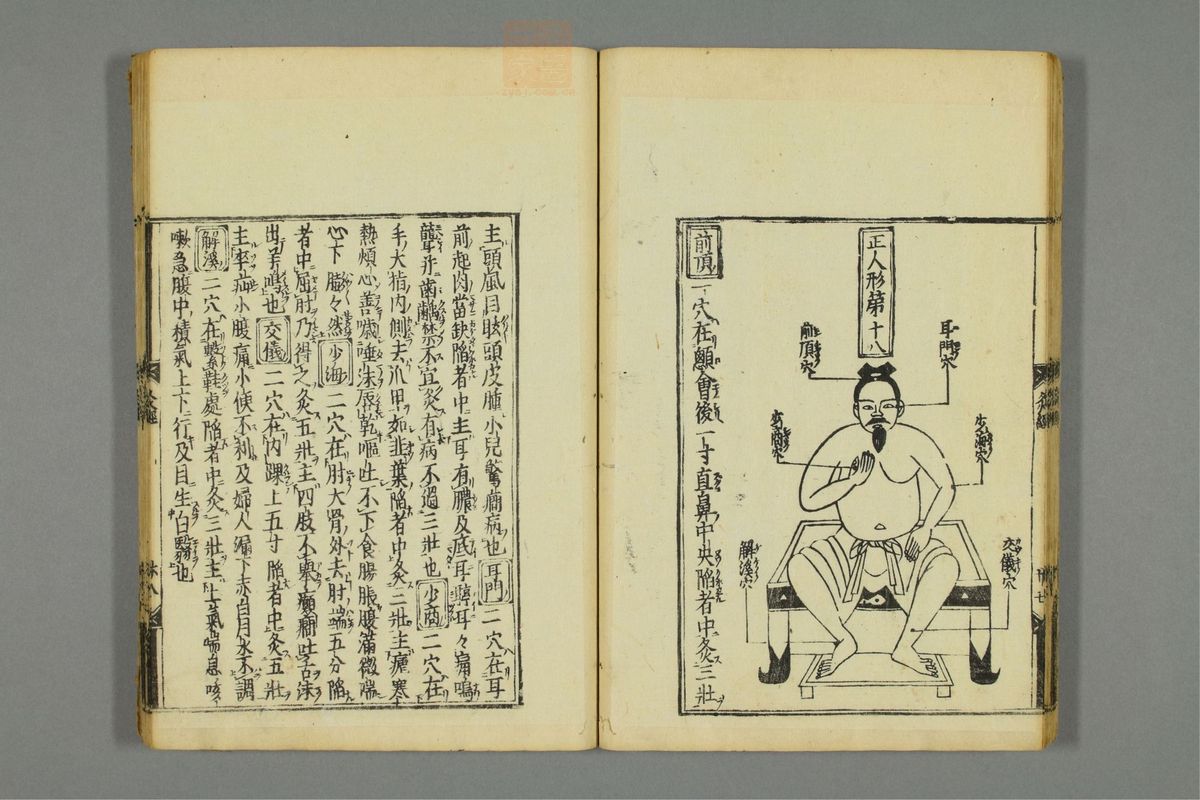 正人形第十八
耳門穴
前頂穴
少海穴
少商穴
交儀穴
解溪穴
前頂
一穴在顖會後一寸直鼻中央陷者中灸三壯
主頭風目眩頭皮腫小兒驚癎病也耳門二穴在耳
前起肉當缺陷者中主耳有膿及底耳聾耳々痛鳴
聾并齒齲禁不宜灸有病不過三壯也少商二穴在
手大指內側去爪甲如韭葉陷者中灸三壯主瘧寒
熱煩心善噦唾沫唇乾嘔吐不下食腸脹腹滿微喘
心下膨々然少海二穴在肘大骨外去肘端五分陷
者中屈肘乃得之灸五壯主四肢不舉癲癎吐舌沫
出羊鳴也交儀二穴在內踝上五寸陷者中灸五壯
主卒疝小腹痛小便不利及婦人漏下赤白月水不調
解溪二穴在繫鞋處陷者中灸三壯主上氣喘息咳
嗽急腹中積氣上下行及目生白翳也